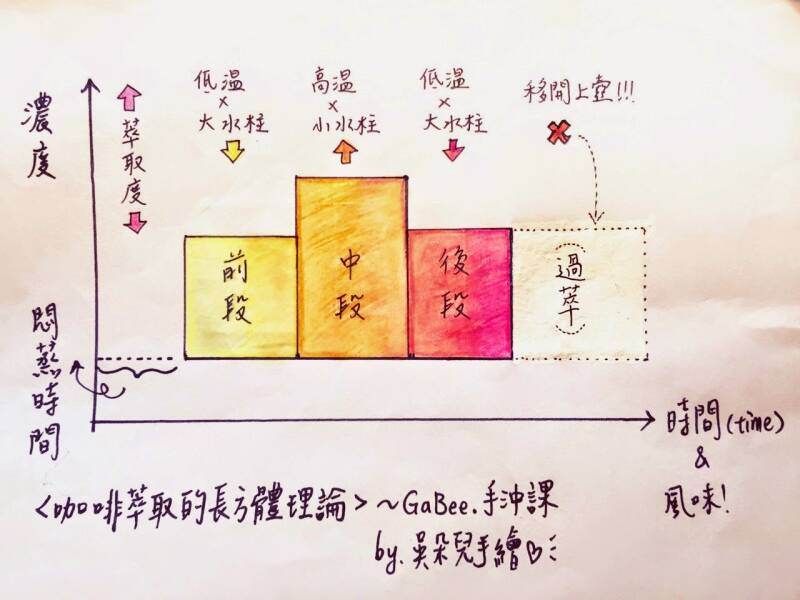 濃度
萃取度
低溫
×
大水柱
高溫
×
小水柱
低溫
×
大水柱
移開上壺!!!
前段
中段
後段
(過萃)
悶蒸時間
時間(time)
&
風味!
<咖啡萃取的長方體理論>~GaBee.手沖課
by.吳朵兒手繪